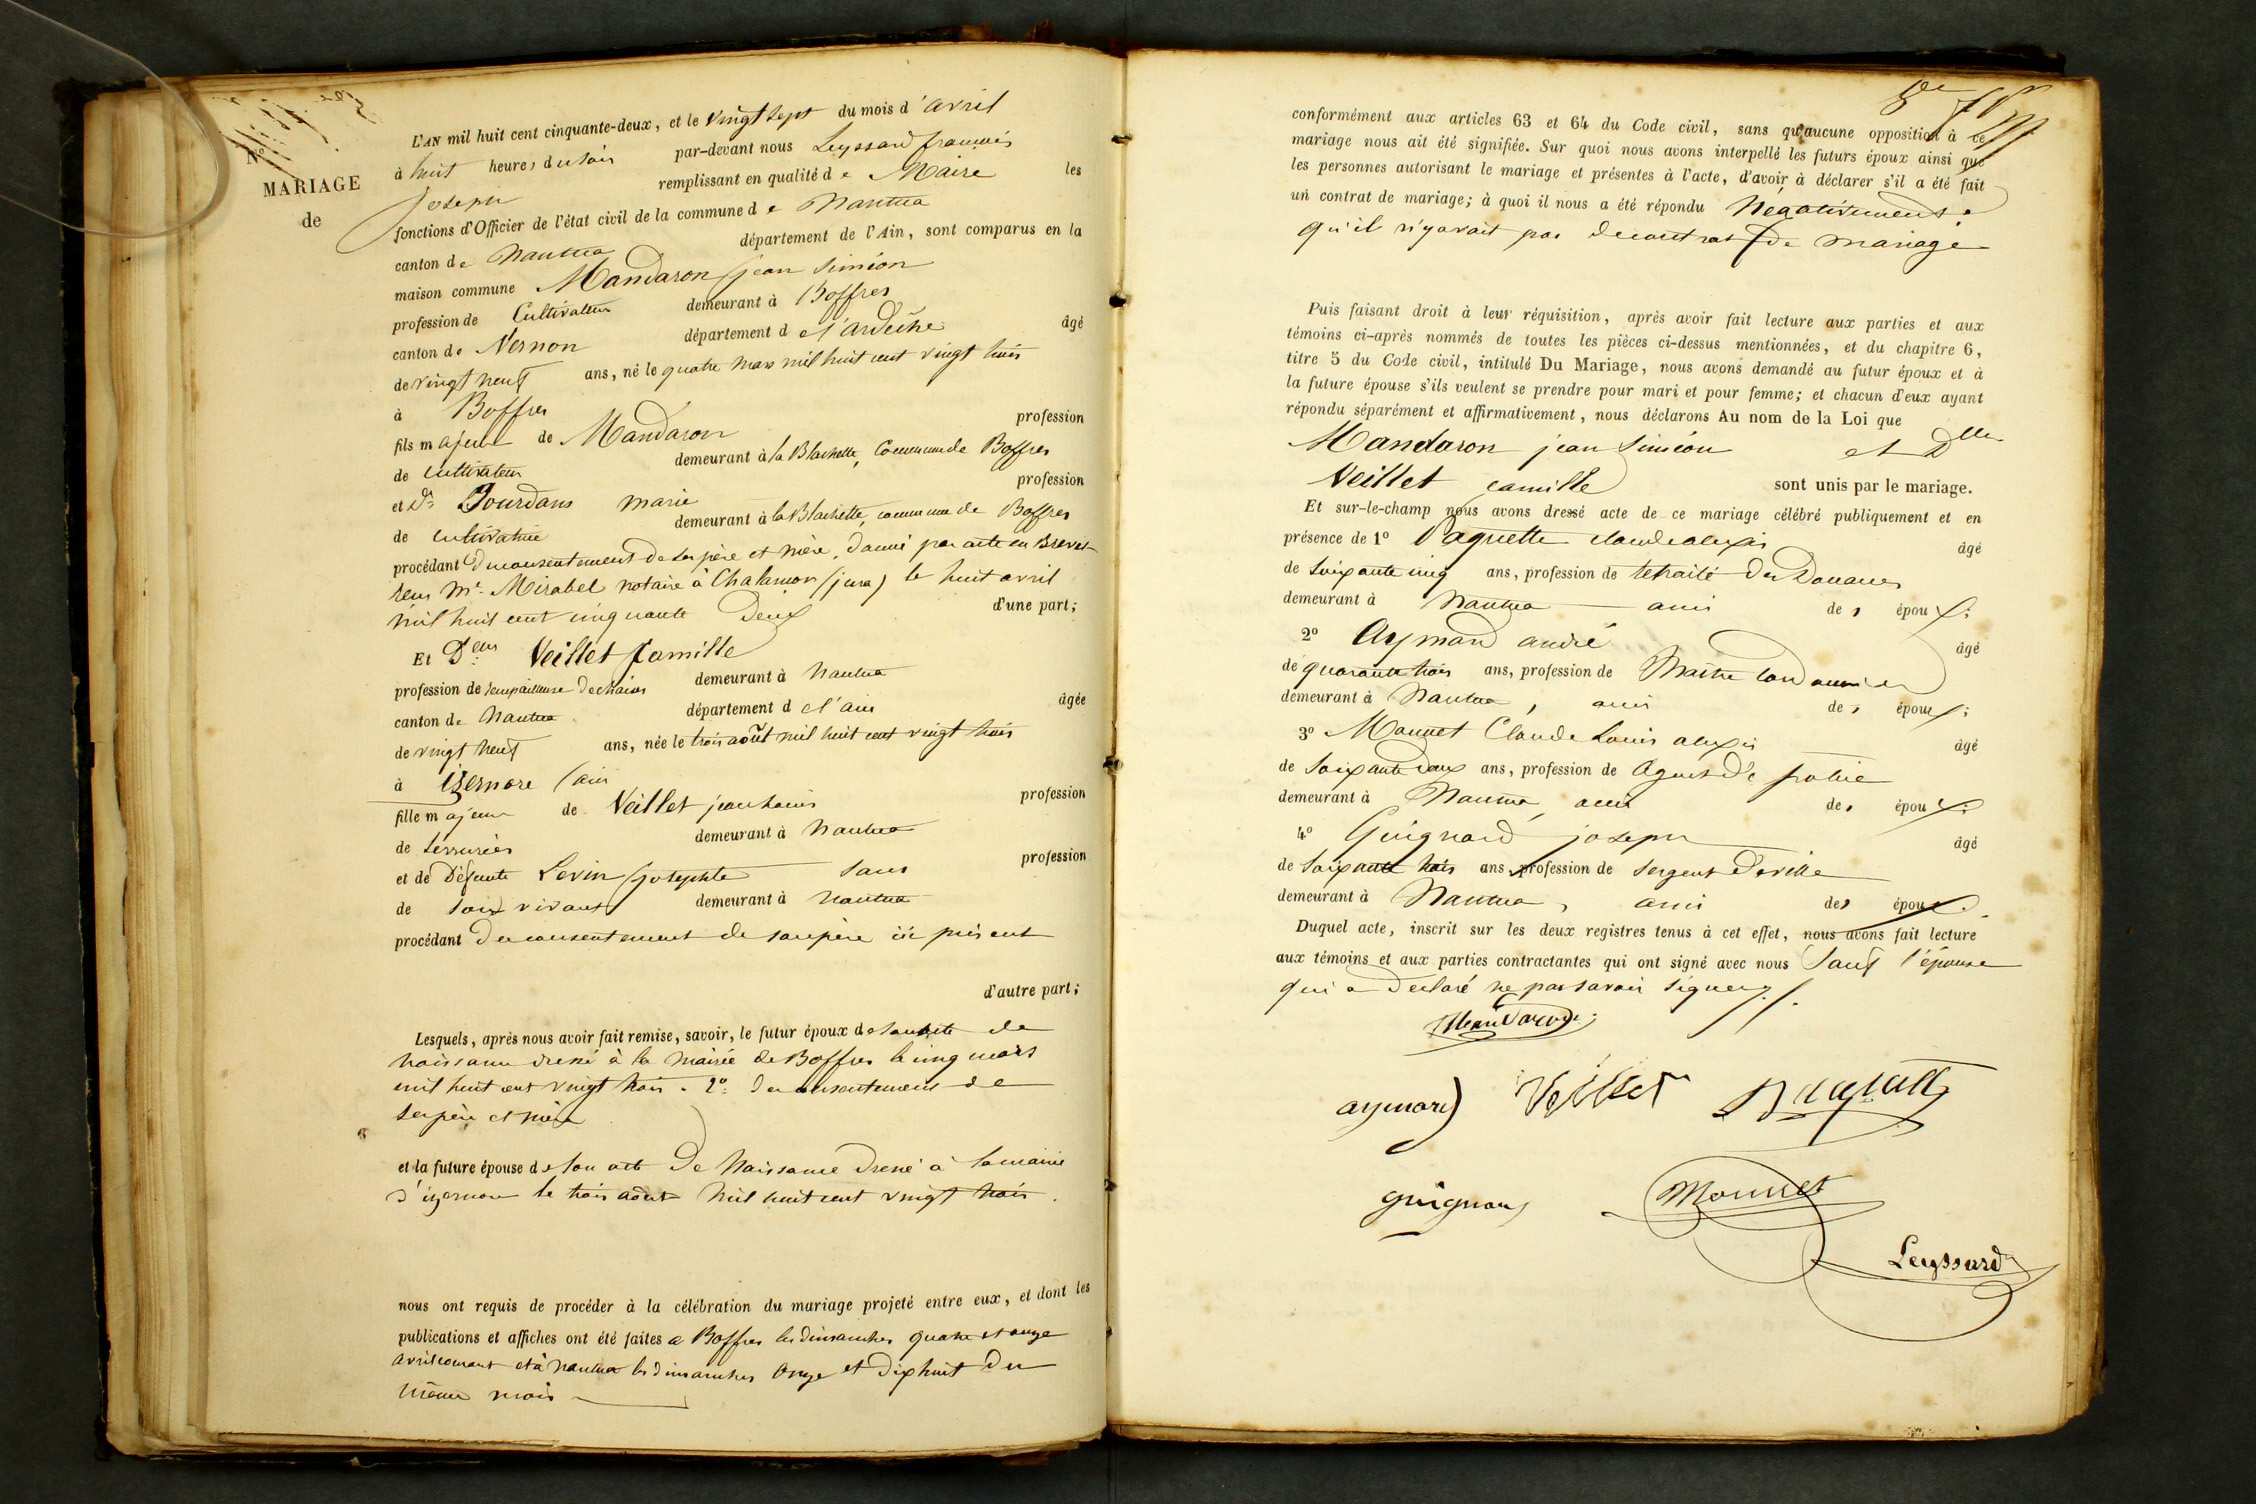 N°
MARIAGE
de
L'AN mil huit cent cinquante-deux, et le vingt sept du mois d'avril
à huit heures du soir par-devant nous Leyssard françois
joseph remplissant en qualité de Maire les
fonctions d'Officier de l'état civil de la commune de Nantua
canton de Nantua département de l'Ain, sont comparus en la
maison commune Mandaron jean Siméon
profession de Cultivateur demeurant à Boffres
canton de Vernon département de l'ardèche âgé
de vingt neuf ans, né le quatre mars mil huit cent vingt trois
à Boffres
fils majeur de Mandaron profession
de cultivateur demeurant à la Blachette, Commune de Boffres
et de Bourdans marie profession
de cultivatrice demeurant à la Blachette, commune de Boffres
procédant du consentement de ses père et mère, donné par acte en Brevet
reçu Me Mirabel notaire à Chalamon (jura) le huit avril
mil huit cent cinquante Deux d'une part;
Et Delle Veillet Camille
profession de rempailleuse de chaises demeurant à Nantua
canton de Nantua département de l'ain âgée
de vingt neuf ans, née le trois août mil huit cent vingt trois
à izernore (ain
fille majeure de Veillet jean louis profession
de Serrurier demeurant à Nantua
et de Défunte Levin josephte sans profession
de son vivant demeurant à Nantua
procédant du consentement de son père ici présent
d'autre part;
Lesquels, après nous avoir fait remise, savoir, le futur époux de son acte de
naissance dressé à la mairie de Boffres le cinq mars
mil huit cent vingt trois. 2° du consentement de
ses père et mère
et la future épouse de son acte de Naissance dressé à la mairie
d'izernore le trois août mil huit cent vingt trois.
nous ont requis de procéder à la célébration du mariage projeté entre eux, et dont les
publications et affiches ont été faites à Boffres les dimanches quatre et onze
avril courant et à Nantua les dimanches onze et dix huit du
même mois
conformément aux articles 63 et 64 du Code civil, sans qu'aucune opposition à ce
mariage nous ait été signifiée. Sur quoi nous avons interpellé les futurs époux ainsi que
les personnes autorisant le mariage et présentes à l'acte, d'avoir à déclarer s'il a été fait
un contrat de mariage; à quoi il nous a été répondu Négativement.
qu'il n'y avait pas de contrat de mariage
Puis faisant droit à leur réquisition, après avoir fait lecture aux parties et aux
témoins ci-après nommés de toutes les pièces ci-dessus mentionnées, et du chapitre 6,
titre 5 du Code civil, intitulé Du Mariage, nous avons demandé au futur époux et à
la future épouse s'ils veulent se prendre pour mari et pour femme; et chacun d'eux ayant
répondu séparément et affirmativement, nous déclarons Au nom de la Loi que
Mandaron jean Siméon et Dlle
Veillet camille sont unis par le mariage.
Et sur-le-champ nous avons dressé acte de ce mariage célébré publiquement et en
présence de 1° Paquette claude alexis âgé
de soixante cinq ans, profession de retraité des Douanes
demeurant à Nantua ami des époux;
2° Aymard andré âgé
de quarante trois ans, profession de Maître cordonnier
demeurant à Nantua, ami des époux;
3° Mounet Claude Louis alexis âgé
de soixante deux ans, profession de Agent de police
demeurant à Nantua, ami des époux;
4° Guignard joseph âgé
de soixante trois ans, profession de sergent de ville
demeurant à Nantua, ami des époux.
Duquel acte, inscrit sur les deux registres tenus à cet effet, nous avons fait lecture
aux témoins et aux parties contractantes qui ont signé avec nous sauf l'épouse
qui a déclaré ne pas savoir signer.
Mandaron
aymard Veillet Paquette
guignard Mounet
Leyssard